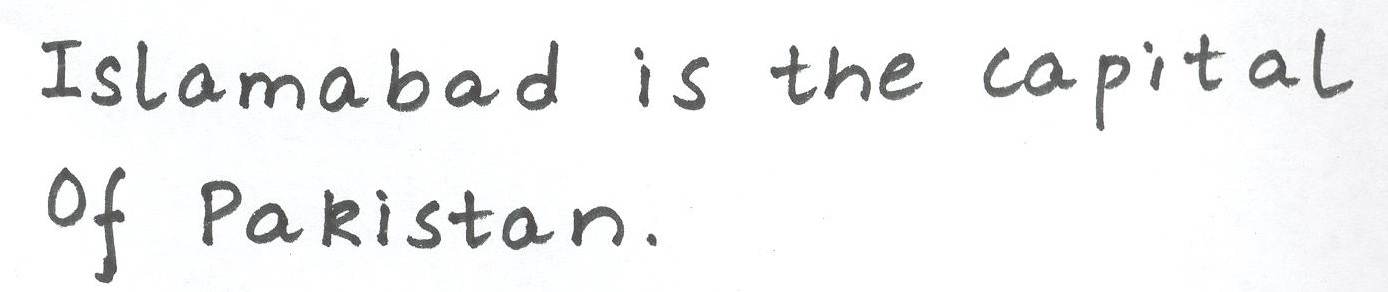 Islamabad is the capital
of Pakistan.